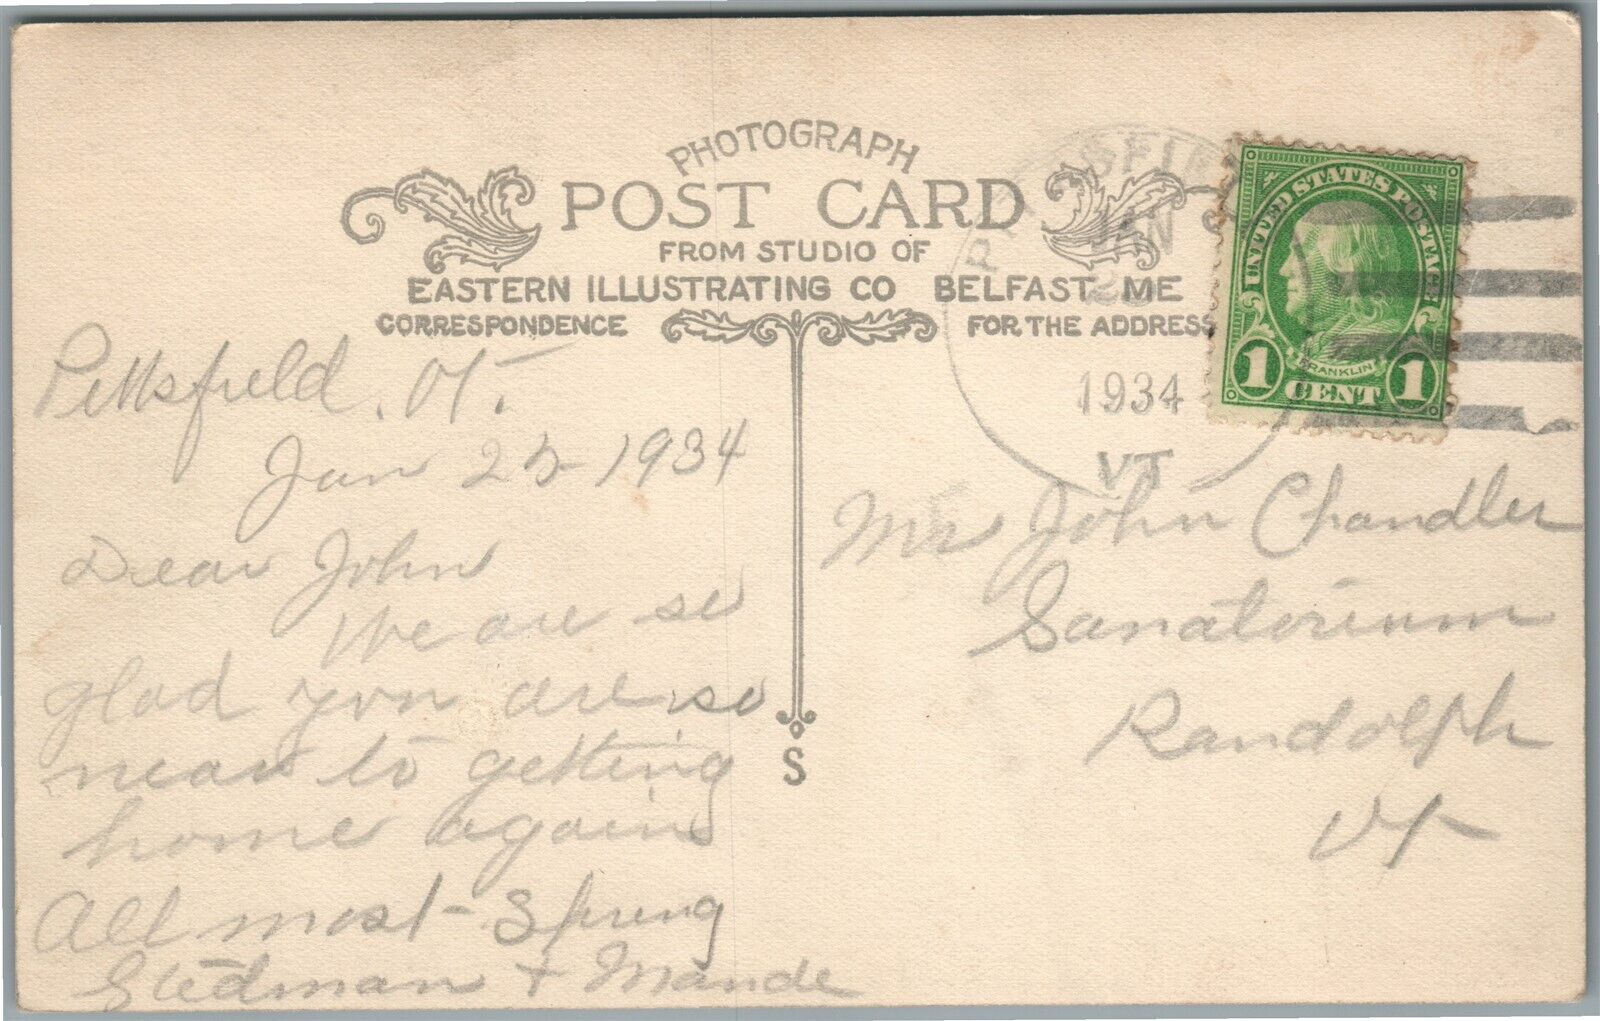 PHOTOGRAPH
POST CARD
FROM STUDIO OF
EASTERN ILLUSTRATING CO BELFAST, ME
CORRESPONDENCE
FOR THE ADDRESS
PITTSFIEL
JAN
1934
VT
UNITED STATES POSTAGE
FRANKLIN
1 CENT 1
Pittsfield, Vt.
Jan 25 1934
Dear John
We are so
glad you are so
near to getting
home again
All most Spring
Stedman + Maude
S
Mr John Chandler
Sanatorium
Randolph
Vt